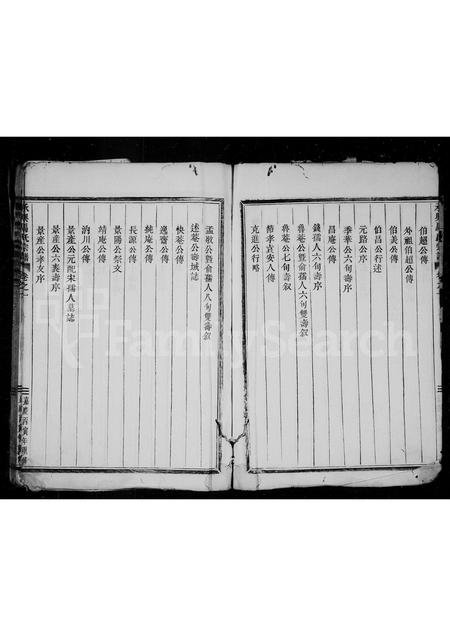 伯超公傳
外祖伯超公傳
伯美公傳
伯昌公行述
元路公序
季華公六旬壽序
錢孺人六旬壽序
昌庵公傳
魯菴公暨俞孺人六旬雙壽叙
魯菴公七旬壽叙
節孝袁安人傳
克進公行略
孟敬公暨俞孺人八旬雙壽叙
述菴公壽域誌
快菴公傳
逸齋公傳
純庵公傳
長源公傳
景陽公祭文
靖庵公傳
汭川公傳
景產公元配宋孺人墓誌
景產公六袠壽序
景產公孝友序
嘉慶丙寅年
FamilySearch